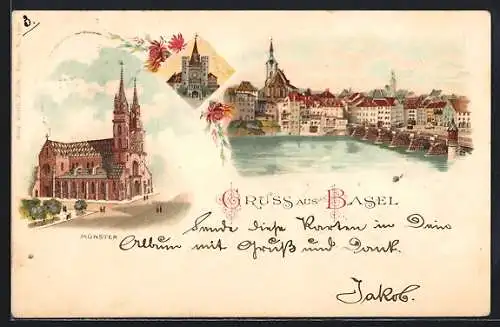 3.
GRUSS AUS BASEL
MÜNSTER
Sende diese Karten in Dein
Album mit Gruß und Dank.
Jakob.